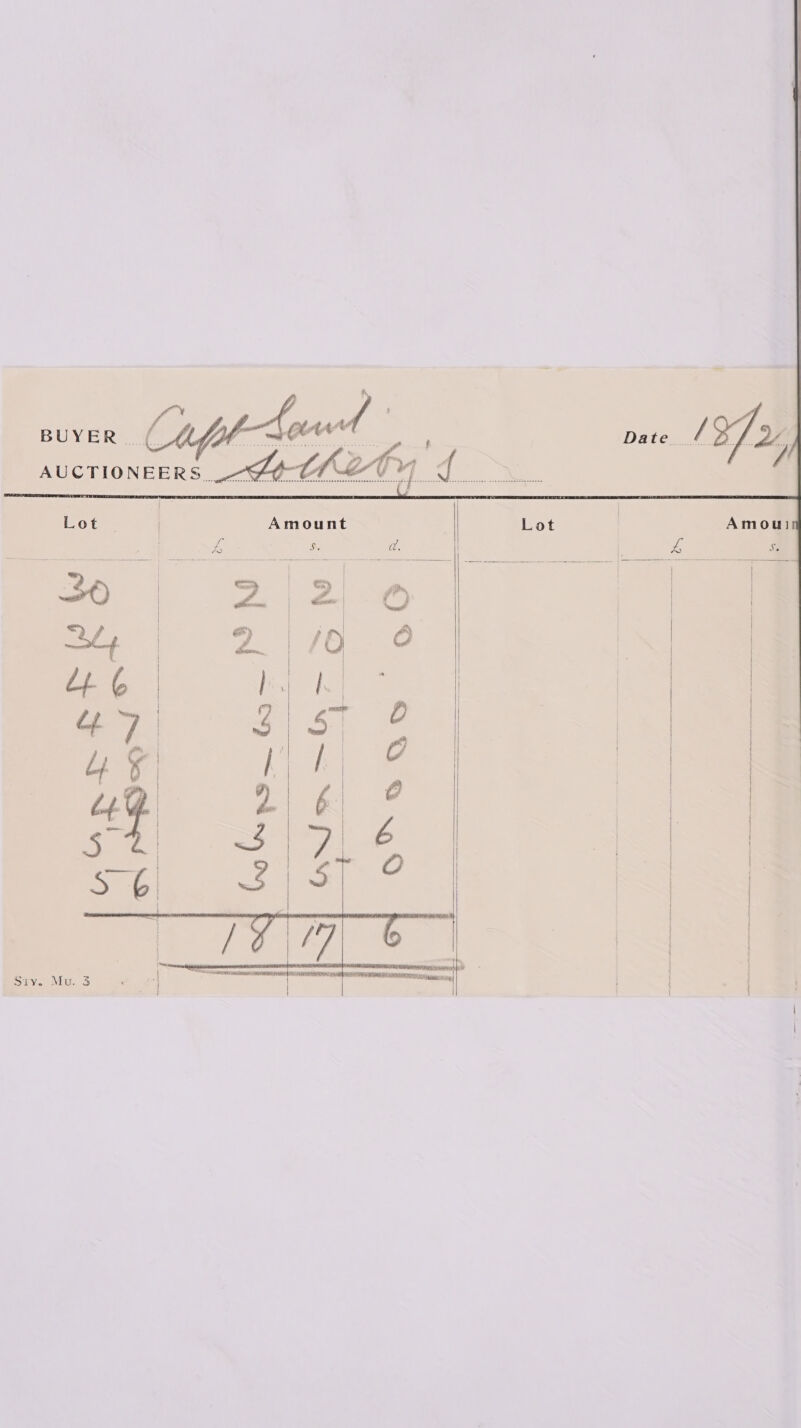 BUYER Capt
AUCTIONEERS Sotheby's
Date 18/2
Lot Amount Lot Amoun
£ s. d. £ s.
30 2 2 0
34 2 10 0
46 1 1 -
47 3 5 0
48 1 1 0
49 2 6 0
52 3 7 6
56 3 5 0
18 17 6
Siy. Mu. 3